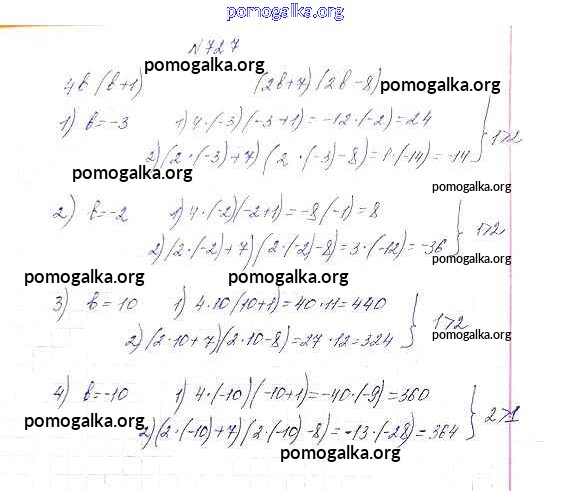 pomogalka.org
N 727
pomogalka.org
4b (b+1) (2b+7) (2b-8) pomogalka.org
1) b=-3 1) 4·(-3)(-3+1)=-12·(-2)=24
2) (2·(-3)+7) (2·(-3)-8)=1·(-14)=-14 } 1>2
pomogalka.org pomogalka.org
2) b=-2 1) 4·(-2)(-2+1)=-8(-1)=8
2) (2·(-2)+7) (2·(-2)-8)=3·(-12)=-36 } 1>2
pomogalka.org
pomogalka.org pomogalka.org
3) b=10 1) 4·10 (10+1)=40·11=440
2) (2·10+7)(2·10-8)=27·12=324 } 1>2
pomogalka.org
4) b=-10 1) 4·(-10) (-10+1)=-40·(-9)=360
pomogalka.org pomogalka.org
2) (2·(-10)+7) (2·(-10)-8)=-13·(-28)=364 } 2>1
pomogalka.org